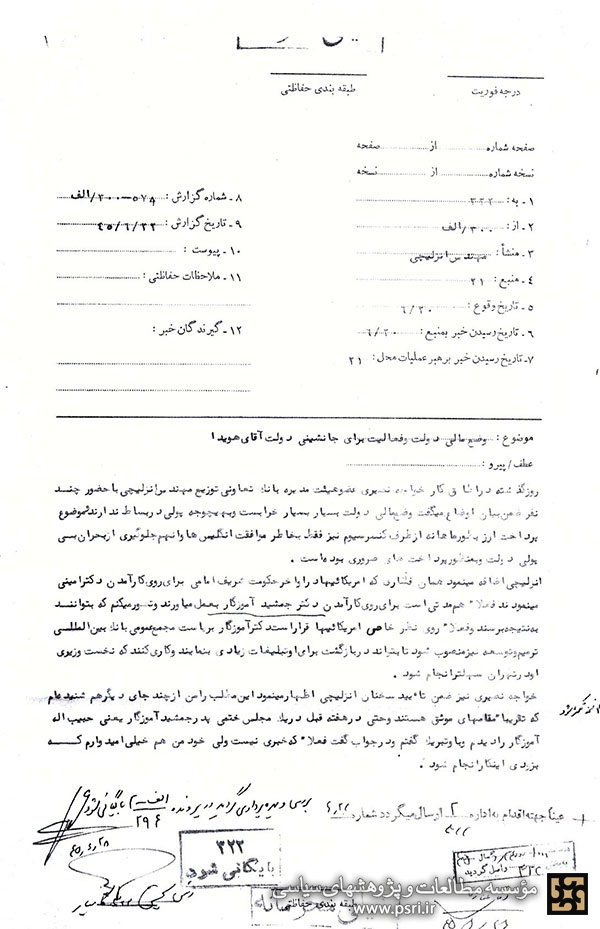 ۱
درجه فوریت
طبقه بندی حفاظتی
صفحه شماره از صفحه
نسخه شماره از نسخه
۱ـ به: ۳۲۲
۲ـ از: ۳۰۰/الف
۳ـ منشأ: مهندس انزلیچی
۴ـ منبع: ۲۱
۵ـ تاریخ وقوع: ۶/۲۰
۶ـ تاریخ رسیدن خبر بمنبع: ۶/۲۰
۷ـ تاریخ رسیدن خبر برهبر عملیات محل: ۲۱
۸ـ شماره گزارش: ۵۷۸-۳۰۰/الف
۹ـ تاریخ گزارش: ۴۵/۶/۲۲
۱۰ـ پیوست:
۱۱ـ ملاحظات حفاظتی:
۱۲ـ گیرندگان خبر:
موضوع: وضع مالی دولت و فعالیت برای جانشینی دولت آقای هویدا
عطف/پیرو:
روز گذشته در اطاق کار خواجه نصیری عضو هیئت مدیره بانک تعاونی توزیع مهندس انزلیچی با حضور چند
نفر ضمن بیان اوضاع میگفت وضع مالی دولت بسیار بسیار خراب است و بهیچوجه پولی در بساط ندارند موضوع
پرداخت ارز بطور ماهانه از طرف کنسرسیوم نیز فقط بخاطر موافقت انگلیس ها و آنهم جلوگیری از بحران بی
پولی دولت و بمنظور پرداخت های ضروری بوده است.
انزلیچی اضافه مینمود همان فشاری که امریکائیها در اواخر حکومت شریف امامی برای روی کار آمدن دکتر امینی
مینمودند فعلا" هم مدتی است برای روی کار آمدن دکتر جمشید آموزگار بعمل میاورند و تصور میکنم که بتوانند
به نتیجه برسند و فعلا" روی نظر خاص امریکائیها قرار است دکتر آموزگار بریاست مجمع عمومی بانک بین المللی
ترمیم و توسعه نیز منصوب شود تا بتواند در بازگشت برای او تبلیغات زیادی بنمایند و کاری کنند که نخست وزیری
او در تهران سهلتر انجام شود.
خواجه نصیری نیز ضمن تائید سخنان انزلیچی اظهار مینمود این مطلب را من از چند جای دیگر هم شنیده ام
که تقریبا" مقامهای موثق هستند و حتی در هفته قبل در یک مجلس ختمی پدر جمشید آموزگار یعنی حبیب اله
آموزگار را دیدم و باو تبریک گفتم و در جواب گفت فعلا" که خبری نیست ولی خود من هم خیلی امیدوارم کـه
بزودی اینکار انجام شود.
عیناً جهته اقدام به اداره ۲ ارسال میگردد شماره
۳۲۲
بایگانی شود
طبقه بندی حفاظتی
مؤسسه مطالعات و پژوهشهای سیاسی
www.psri.ir